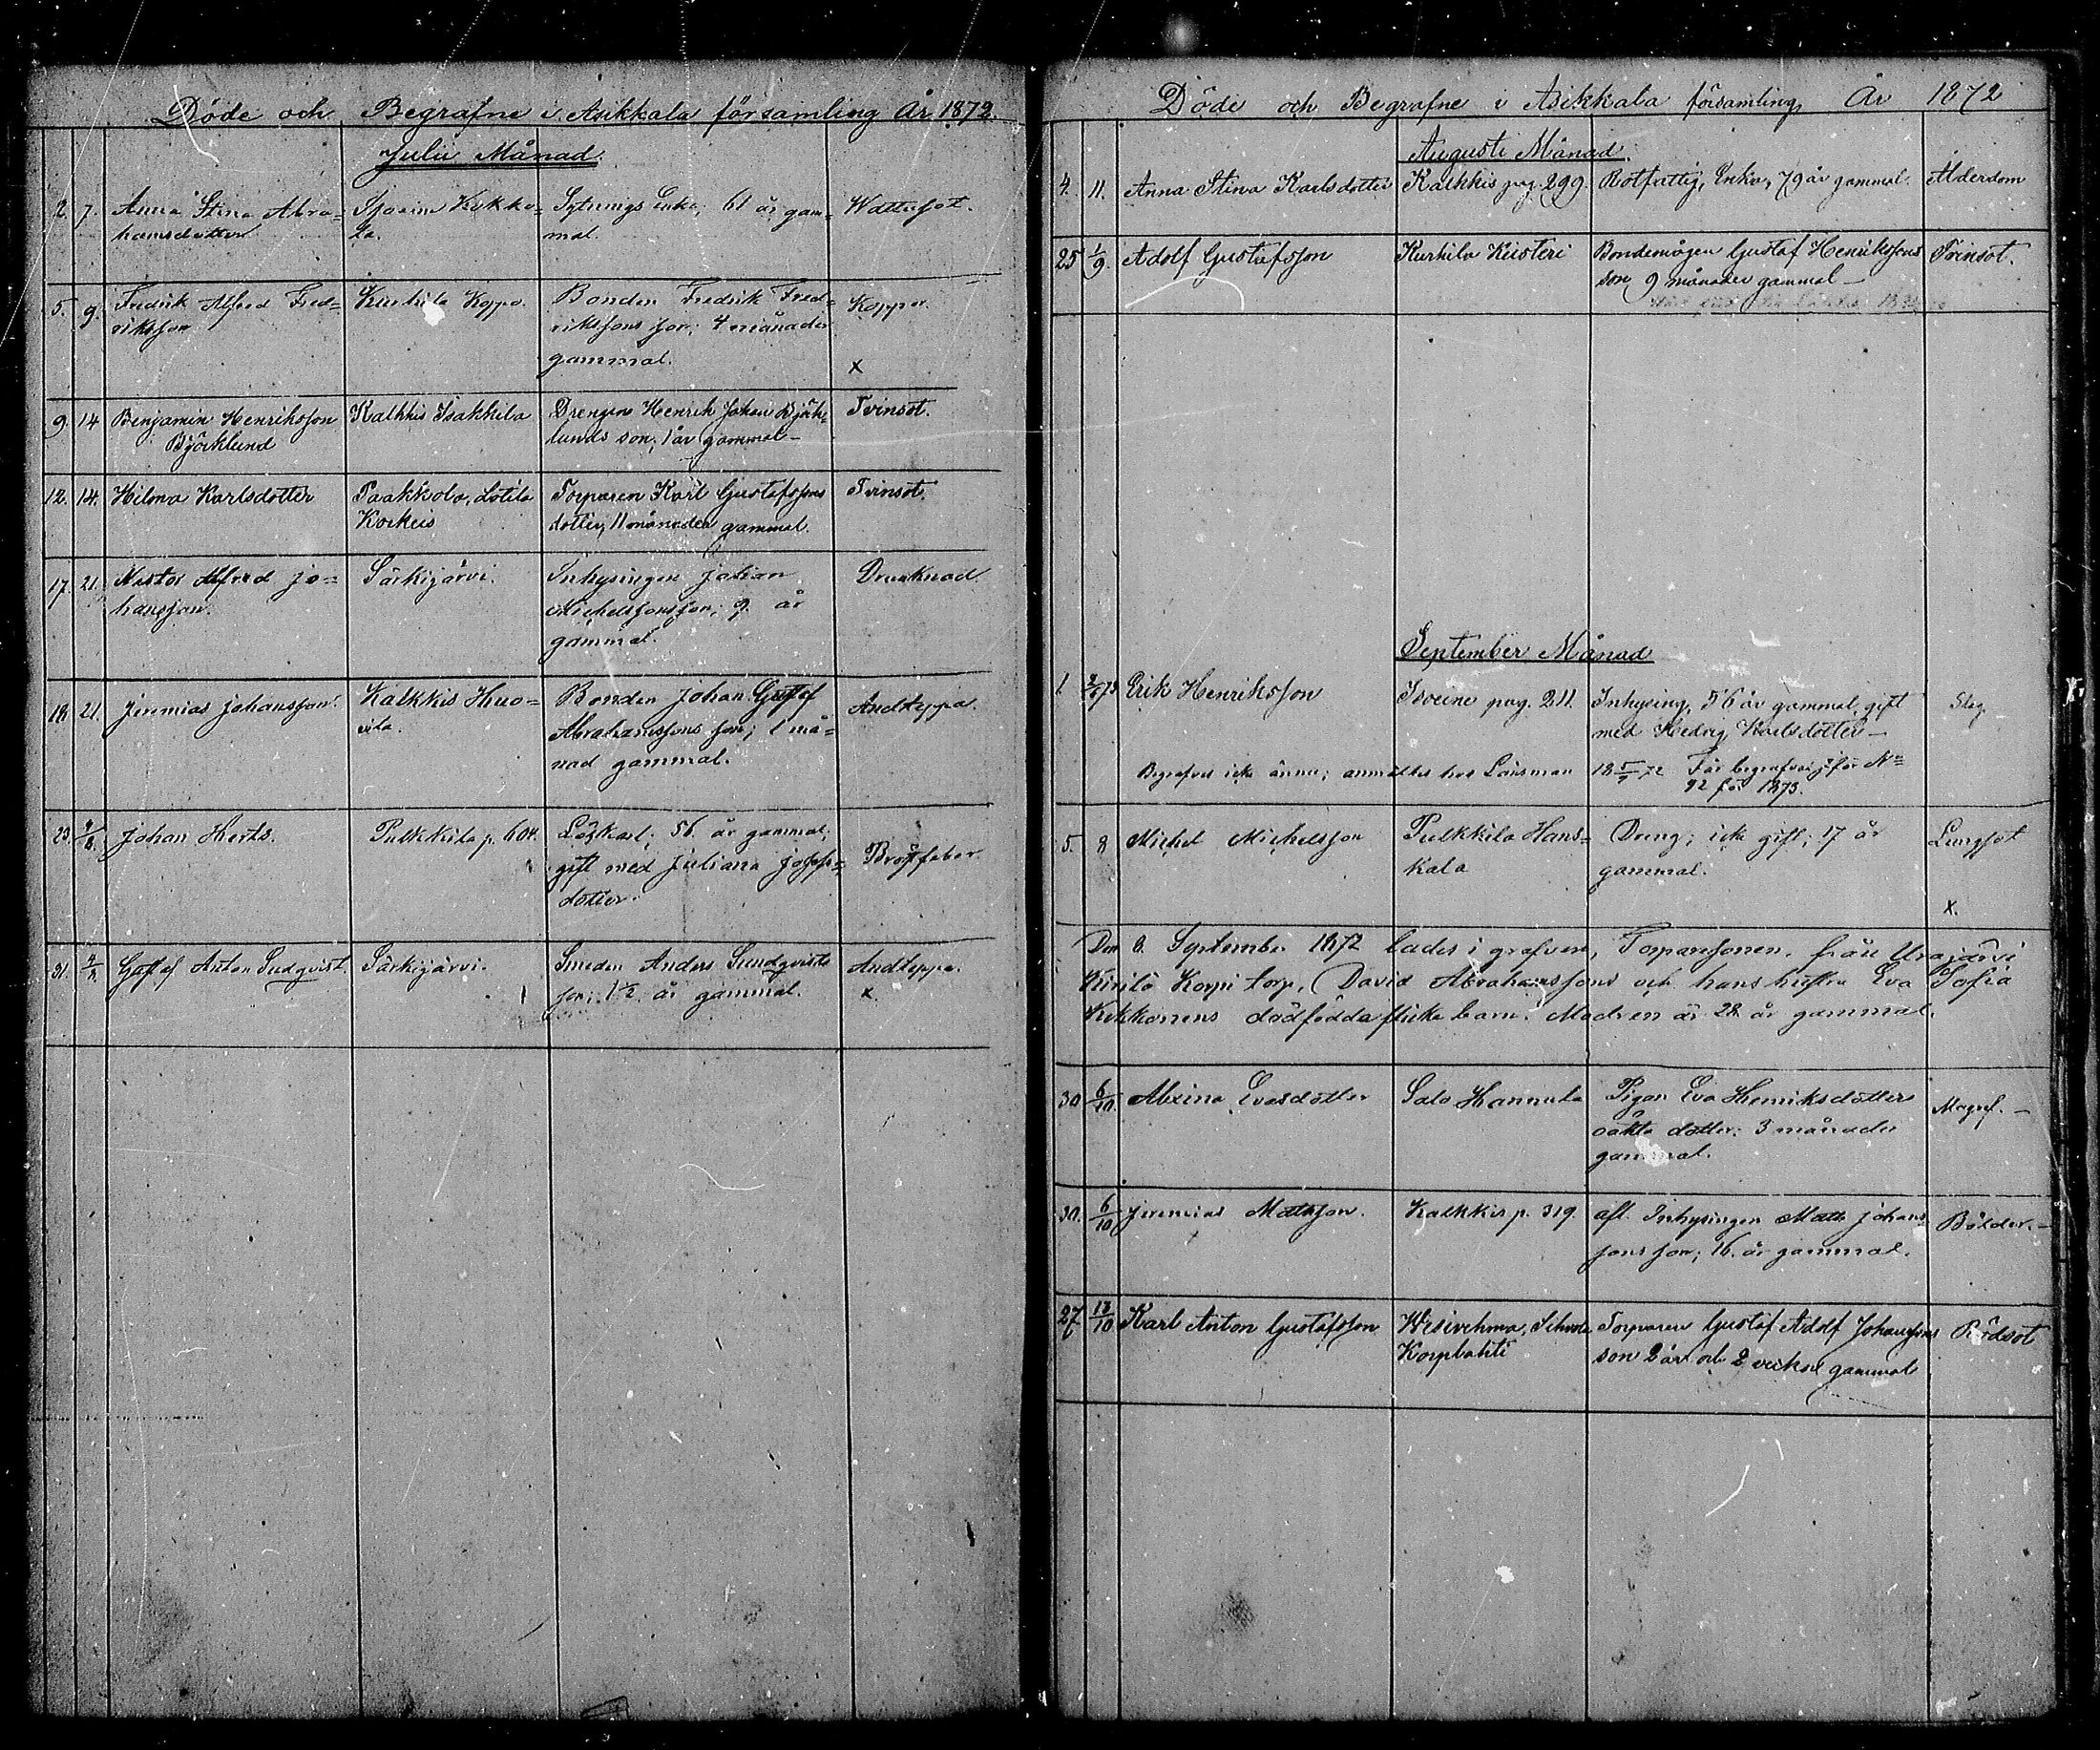 Döde och Begrafne i Asikkala församling År 1872.
Julii Månad.
2. 7. Anna Stina Abra= Isoaine Kokko= Sytnings Enka; 61 år gam= Wattusot.
hamsdotter la. mal.
5. 9. Fredrik Alfred Fred= Kurhila Koppo. Bonden Fredrik Fred= Koppor.
riksson rikssons son; 4 månader
gammal. x
9. 14 Benjamin Henriksson Kalkkis Isakkila Drengen Henrik Johan Björk= Tvinsot.
Björklund lunds son, 1 år gammal –
12. 14. Hilma Karlsdotter Paakkola, Lotila Torparen Karl Gustafssons Tvinsot.
Korkeis dotter, 11 månader gammal.
17. 21. Nestor Alfred Jo= Särkijärvi. Inhysingen Johan Drunknad.
hansson. Michelssons son; 9 år
gammal.
18. 21. Jeremias Johansson. Kalkkis Huo= Bonden Johan Gustaf Andteppa.
vila. Abrahamssons son; 1 må=
nad gammal.
23. 4/8. Johan Herts. Pulkkila p. 604. Löskarl; 56 år gammal;
gift med Juliana Josefs= Bröstfeber
dotter.
31. 4/8. Gustaf Anton Sudqvist. Särkijärvi. Smeden Anders Sundqvists Andteppa.
son; 1 1/2 år gammal. x.
Döde och Begrafne i Asikkala församling År 1872
Augusti Månad.
4. 11. Anna Stina Karlsdotter Kalkkis pag. 299. Rotfattig, Enka, 79 år gammal. Ålderdom
25 1/9. Adolf Gustafsson Kurhila Keisteri Bondemågen Gustaf Henrikssons Tvinsot.
son 9 månader gammal –
September Månad
1. Erik Henriksson Isoeine pag. 211. Inhysing, 56 år gammal, gift Slag.
med Hedvig Karlsdotter –
Begrafves icke ännu; anmäldes hos Länsman 18 5/9 72 Får begrafvas jfr No
92 för 1873.
5. 8 Michel Michelsson Pulkkila Hans= Dreng; icke gift; 17 år Lungsot
kala gammal.
x.
Den 8. September 1872 lades i grafven, Torparsonen från Urajärvi
Kirilä Korpi torp, David Abrahamssons och hans hustru Eva Sofia
Kekkonens dödfödda flicke barn. Modren är 28 år gammal.
30 6/10. Alexina Evasdotter Salo Hannula Pigan Eva Henriksdotters Magref. –
oäkta dotter: 3 månader
gammal.
30. 6/10 Jeremias Mattsson. Kalkkis p. 319. afl. Inhysingen Matts Johans= Bölder. –
sons son; 16 år gammal.
27 13/10 Karl Anton Gustafsson Wesivehma, Torparen Gustaf Adolf Johanssons Rödsot
Korplahti son 2 år och 2 veckor gammal